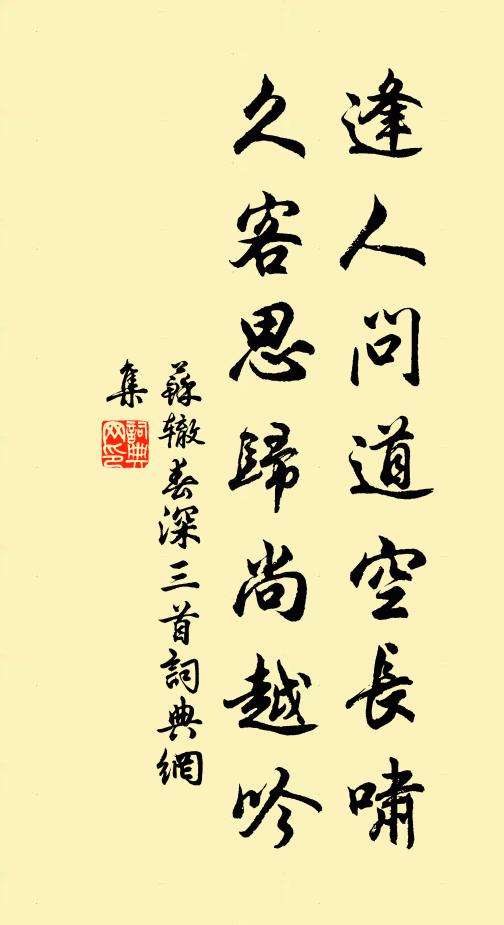 逢人問道空長嘯
久客思歸尚越吟
蘇轍春深三首詞典網
集
詞典
网印